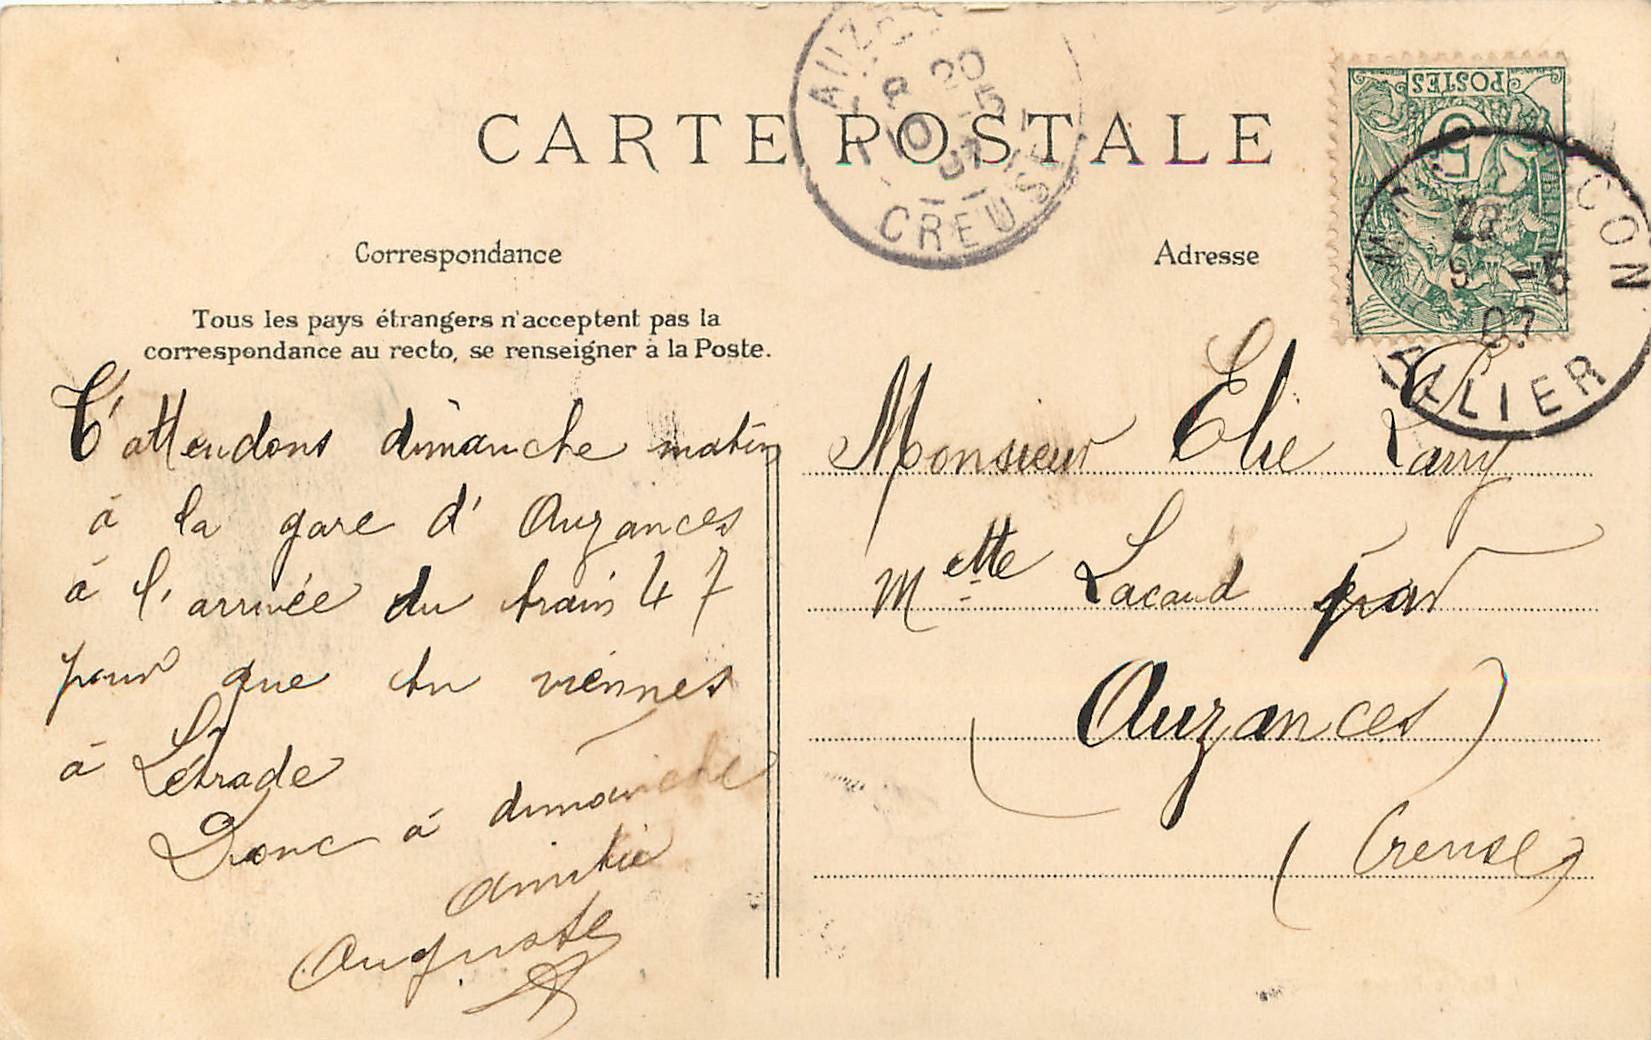 CARTE POSTALE
Correspondance
Tous les pays étrangers n'acceptent pas la
correspondance au recto, se renseigner à la Poste.
T'attendons dimanche matin
à la gare d'Auzances
à l'arrivée du train 47
pour que tu viennes
à Létrade
Donc à dimanche
Amitié
Auguste
Adresse
Monsieur Elie
Mette Lacaud par
(Auzances)
(Creuse)
POSTES
5
CREUSE
20
5
07
CON
5
07
ALLIER